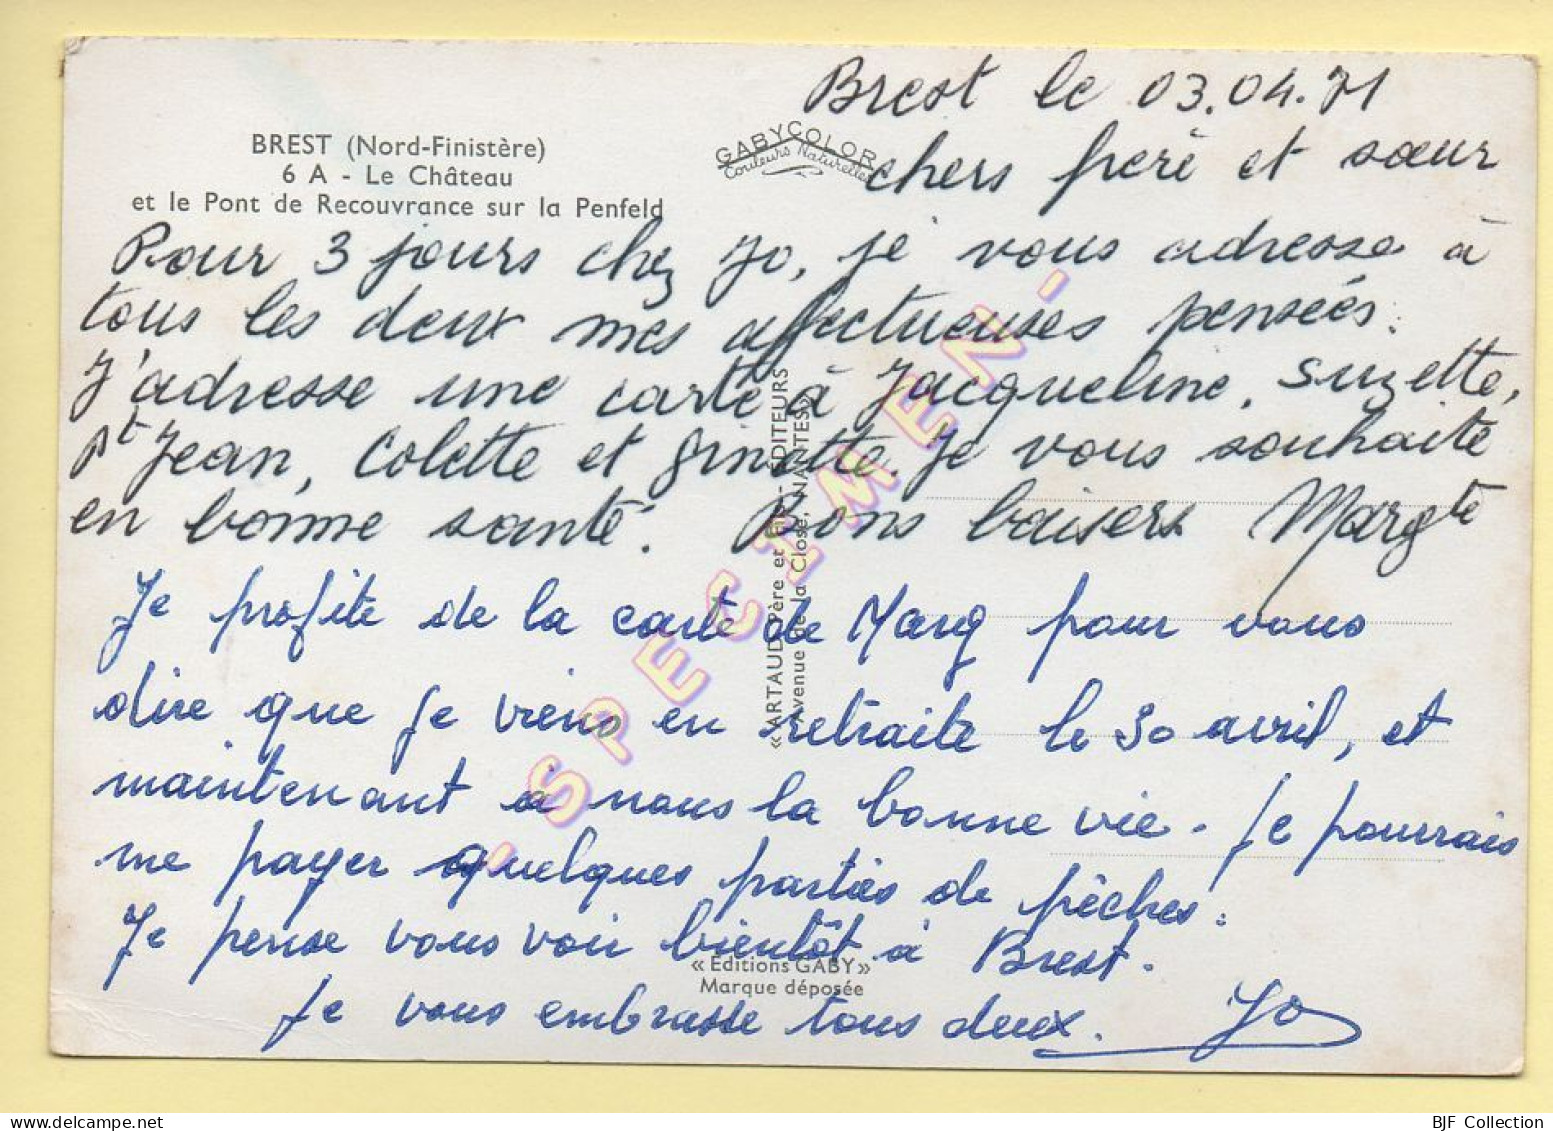 BREST (Nord-Finistère)
6 A - Le Château
et le Pont de Recouvrance sur la Penfeld
GABYCOLOR
Couleurs Naturelles
Brest le 03.04.71
chers frère et sœur
Pour 3 jours chez Jo, je vous adresse à
tous les deux mes affectueuses pensées.
J'adresse une carte à Jacqueline, Suzette,
Pt Jean, Colette et ginette. Je vous souhaite
en bonne santé. Bons baisers Margte
Je profite de la carte de Marg pour vous
dire que je viens en retraite le 30 avril, et
maintenant à nous la bonne vie. Je pourrais
me payer quelques parties de pêches.
Je pense vous voir bientôt à Brest.
Je vous embrasse tous deux. Jo
« ARTAUD Père et Fils - EDITEURS
Avenue de la Close, NANTES »
« Editions GABY »
Marque déposée
- SPECIMEN -
BJF Collection